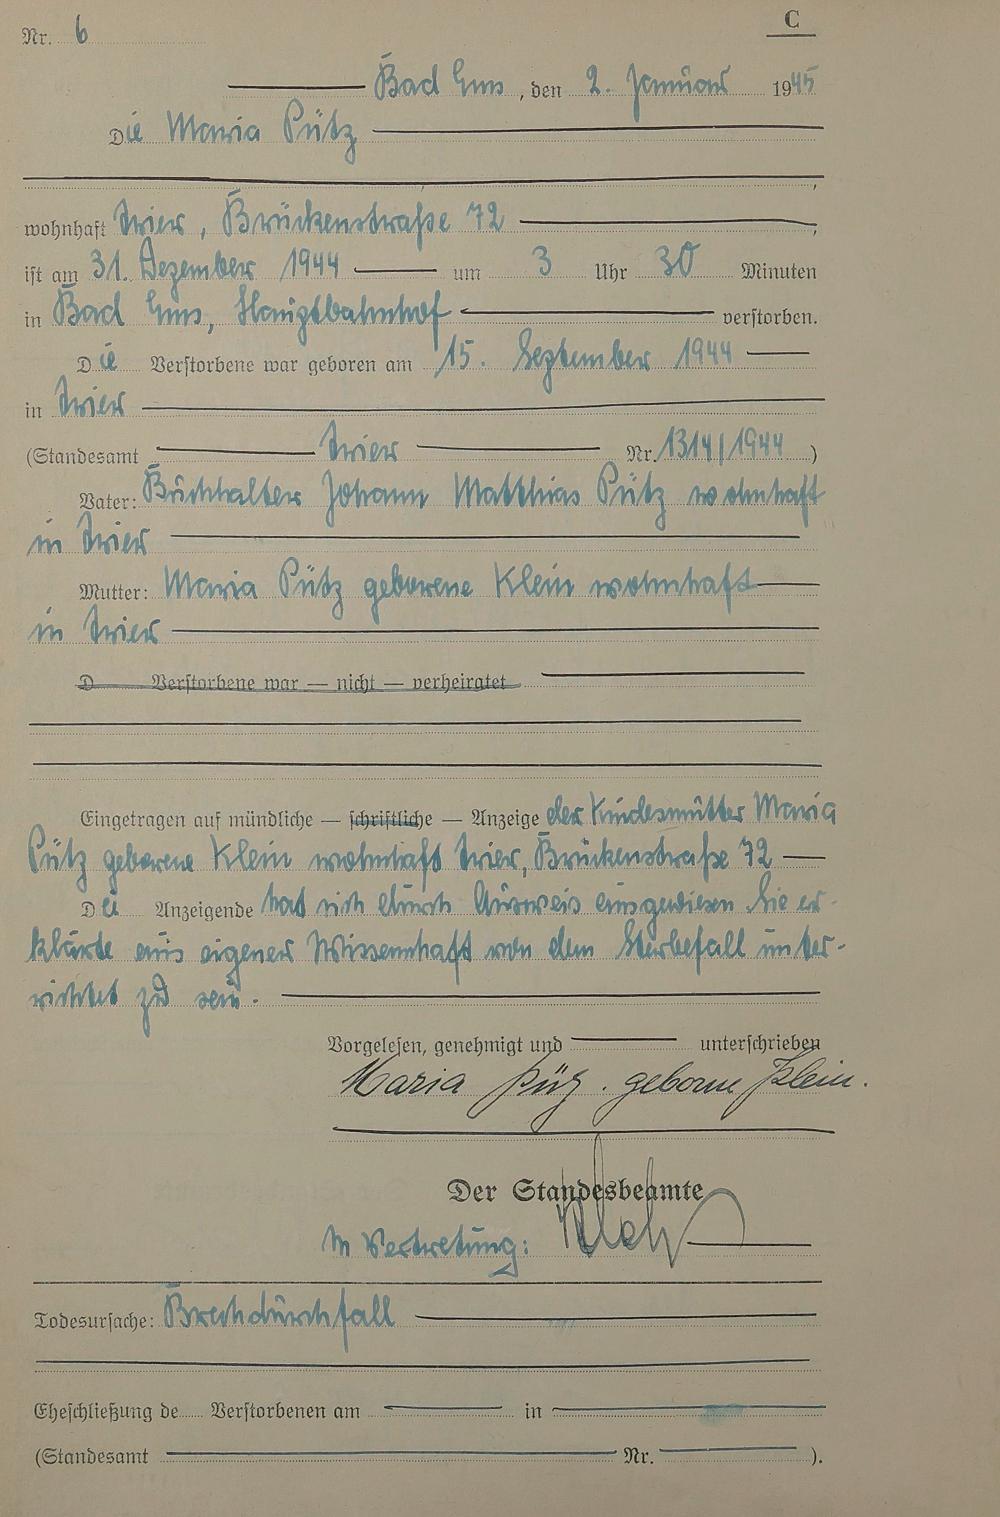 Nr. 6
C
Bad Ems, den 2. Januar 1945
Die Maria Pütz
wohnhaft Trier, Brückenstraße 72
ist am 31. Dezember 1944 um 3 Uhr 30 Minuten
in Bad Ems, Hauptbahnhof verstorben.
Die Verstorbene war geboren am 15. September 1944
in Trier
(Standesamt Trier Nr. 1314/1944)
Vater: Buchhalter Johann Matthias Pütz wohnhaft
in Trier
Mutter: Maria Pütz geborene Klein wohnhaft
in Trier
D Verstorbene war — nicht — verheiratet
Eingetragen auf mündliche — schriftliche — Anzeige der Kindesmutter Maria
Pütz geborene Klein wohnhaft Trier, Brückenstraße 72
Die Anzeigende hat sich durch Ausweis ausgewiesen Sie er-
klärte aus eigener Wissenschaft von dem Sterbefall unter-
richtet zu sein.
Vorgelesen, genehmigt und unterschrieben
Maria Pütz. geborne Klein.
Der Standesbeamte
In Vertretung:
Todesursache: Brechdurchfall
Eheschließung de Verstorbenen am in
(Standesamt Nr. ).